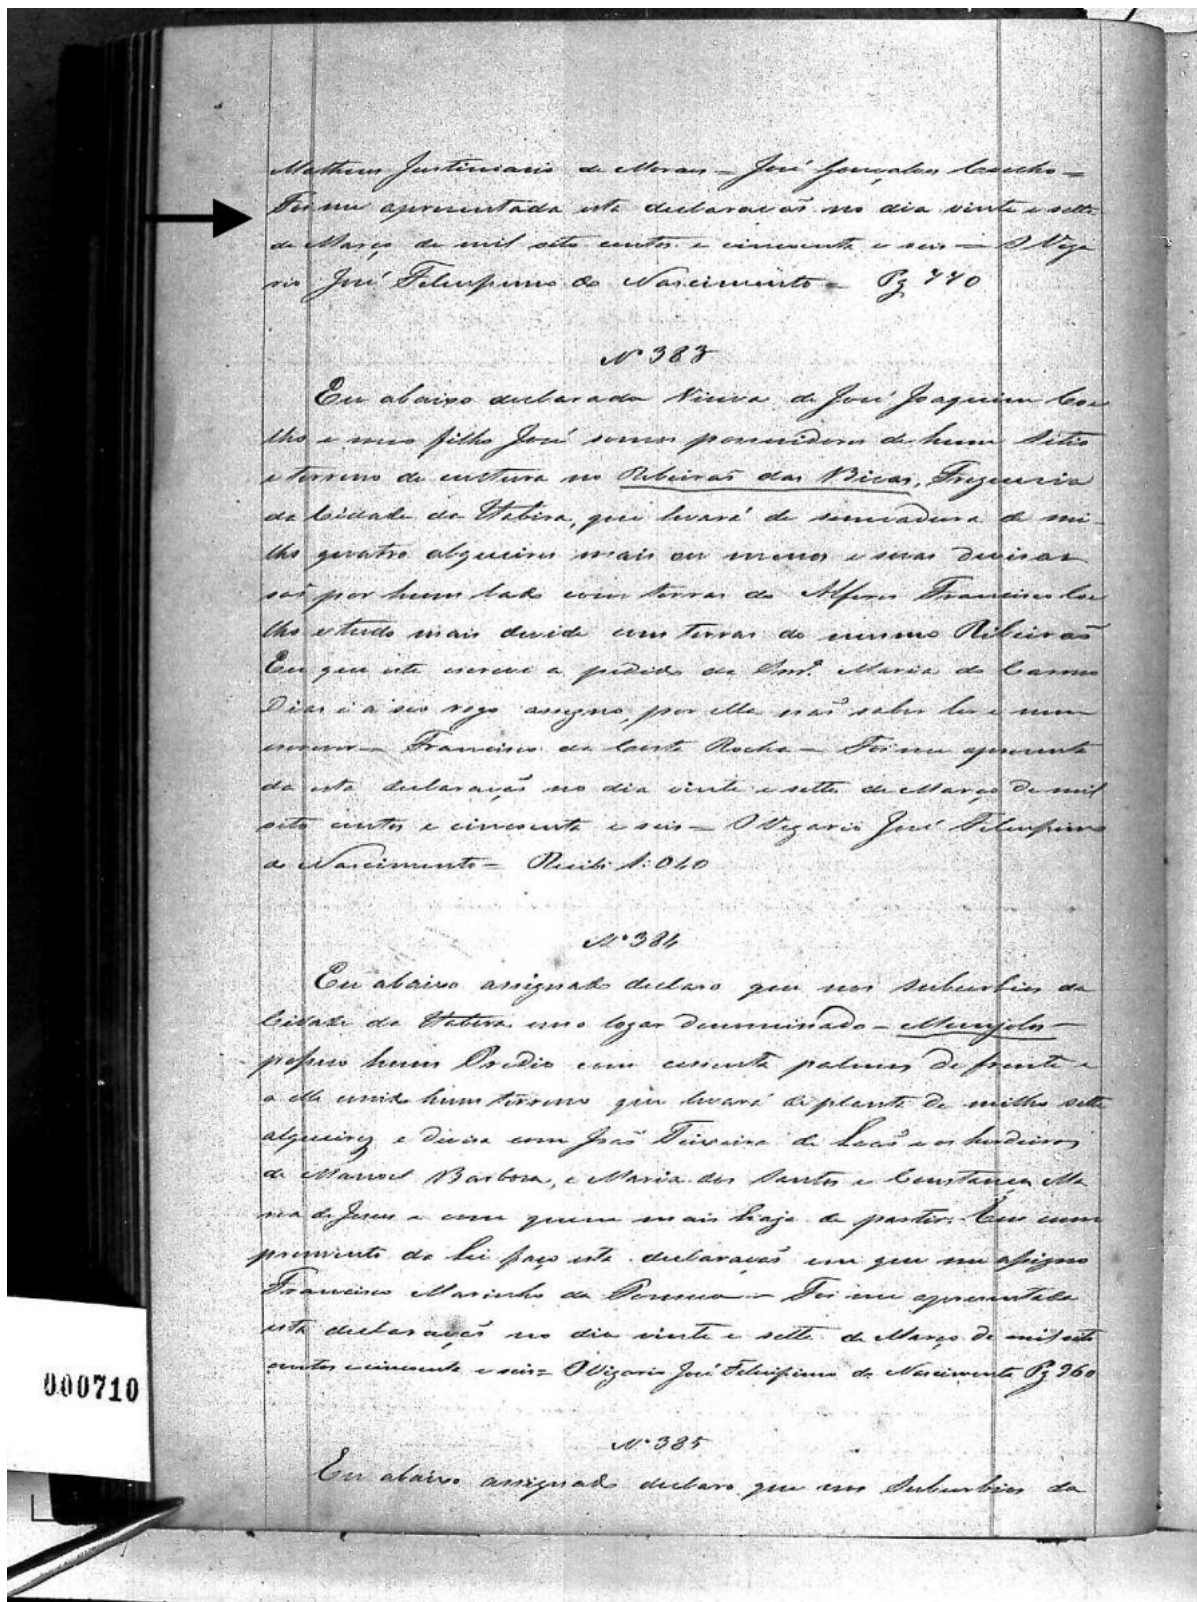 Matheus Justiniano de Moraes = José Gonçalves Coelho =
Foi me apresentada esta declaração no dia vinte e sette
de Março de mil oito centos e cincoenta e seis = O Viga
rio José Felicissimo do Nascimento = Pg 770
Nº 383
Eu abaixo declarada Viuva de José Joaquim Coe
lho e meo filho José somos possuidores de hum Sitio
e terreno de cultura no Ribeirão das Bicas, Freguesia
da Cidade da Itabira, que levará de semeadura de mi
lho quatro alqueires mais ou menos e suas devisas
são por hum lado com terras do Alferes Francisco Coe
lho e tudo mais devide com terras do mesmo Ribeirão
Eu que este escrevi a pedido da Snrª Maria do Carmo
Dias e a seo rogo assigno, por ella não saber ler e nem
escrever = Francisco da Costa Rocha = Foi me apresenta
da esta declaração no dia vinte e sette de Março de mil
oito centos e cincoenta e seis = O Vigario José Felicissimo
do Nascimento = Recebi 1:040
Nº 384
Eu abaixo assignado declaro que nos suburbios da
Cidade da Itabira em o logar denominado = Munjolos =
possuo hum Predio com cessenta palmos de frente e
a elle unido hum terreno que levará de planta de milho sette
alqueires e divisa com João Teixeira de e os herdeiros
de Manoel Barbosa, e Maria dos Santos e Constança Ma
ria de Jesus e com quem mais haja de partir. Em cum
primento da Lei faço esta declaração em que me assigno
Francisco Marinho da = Foi me apresentada
esta declaração no dia vinte e sette de Março de mil oito
centos e cincoenta e seis = O Vigario José Felicissimo do Nascimento Pg 960
Nº 385
Eu abaixo assignado declaro que nos Suburbios da
000710